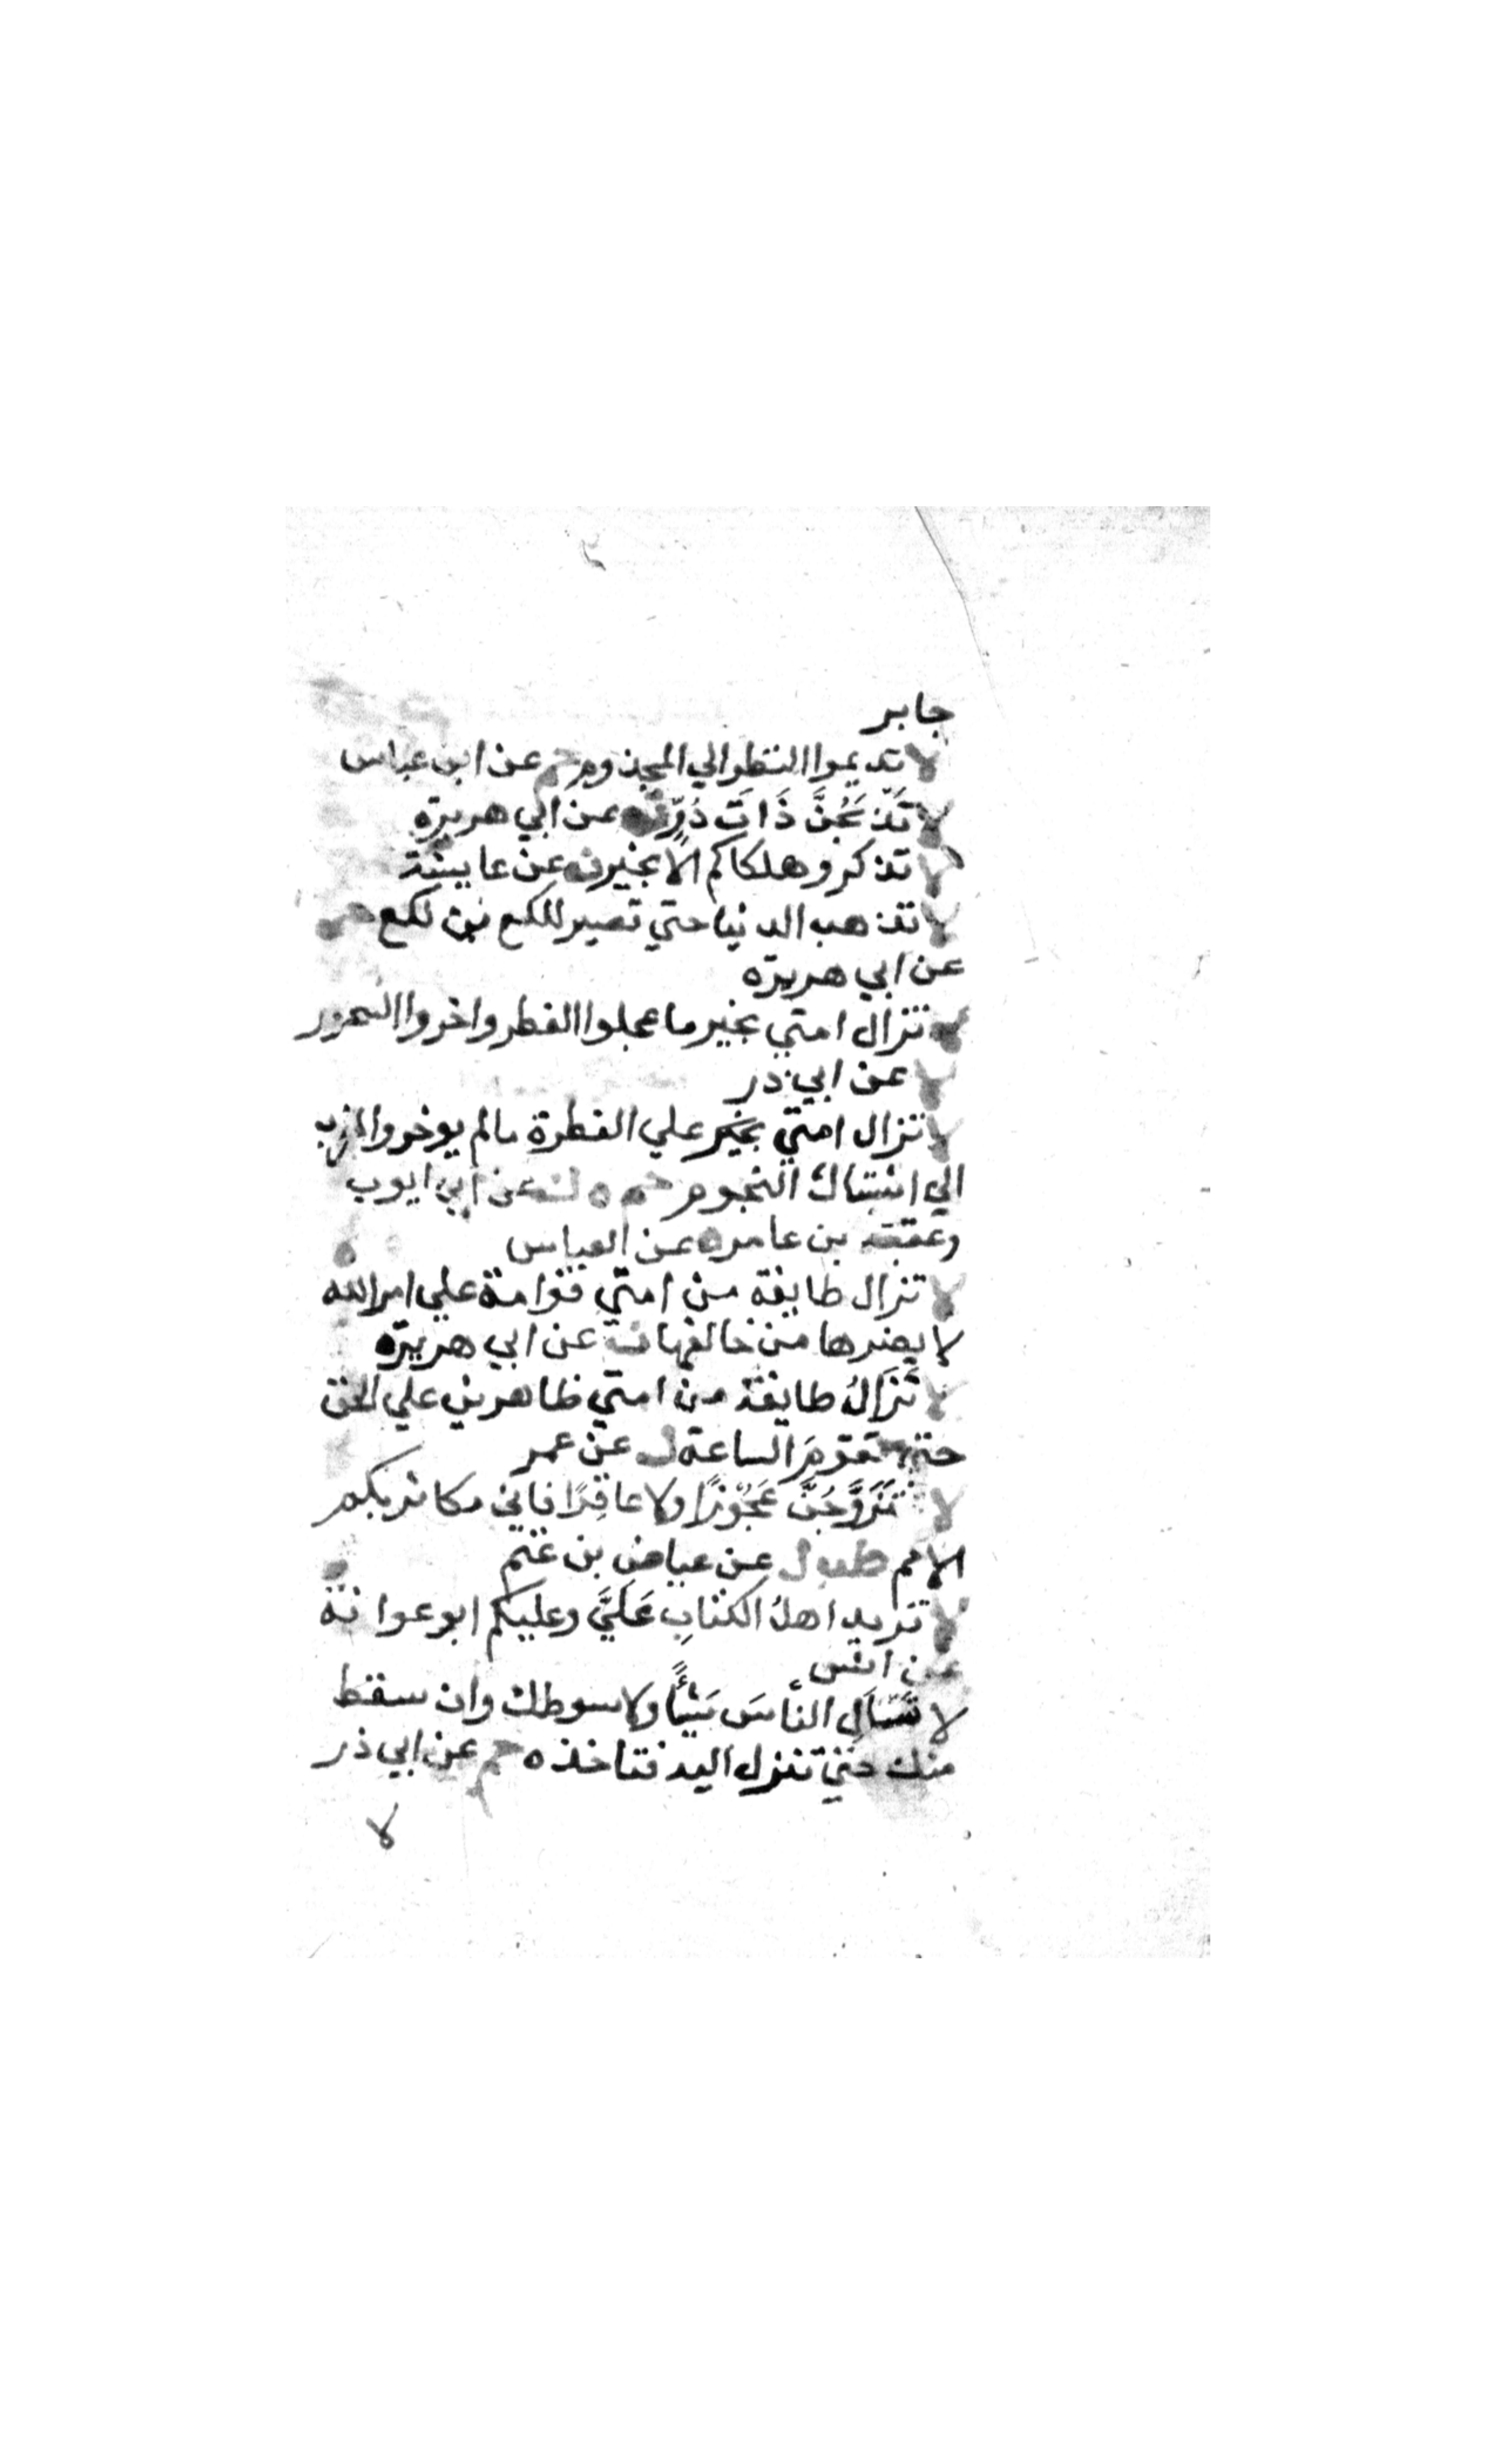 جابر
لا تديموا النظر الي المجذوم حم عن ابن عباس
لا تَذبَحَنَّ ذَاتَ دُرٍّ ت عن ابي هريرة
لا تذكروا هلكاكم الا بخير ن عن عايشة
لا تذهب الدنيا حتي تصير للكع بن لكع حم
عن ابي هريره
لا تزال امتي بخير ما عجلوا الفطر واخروا السحور
عن ابي ذر
لا تزال امتي بخير علي الفطرة مالم يوخروا المغرب
الي اشتباك النجوم حم د ك عن ابي ايوب
وعقبة بن عامر ه عن العباس
لا تزال طايفة من امتي قوامة علي امر الله
لا يضرها من خالفها ه عن ابي هريره
لا تَزَالُ طايفة من امتي ظاهرين علي الحق
حتي تقومَ الساعة ك عن عمر
لا تَزَوَّجُنَّ عَجُوْزًا ولا عاقِرًا فاني مكاثر بكم
الامم طب ك عن عياض بن غنم
لا تزيد اهلُ الكتابِ عَلَيَّ وعليكم ابو عوانة
عن انس
لا تَسْاَلِ الناسَ شَيْأً ولا سوطك وان سقط
منك حتي تنزل اليه فتاخذه حم عن ابي ذر
لا